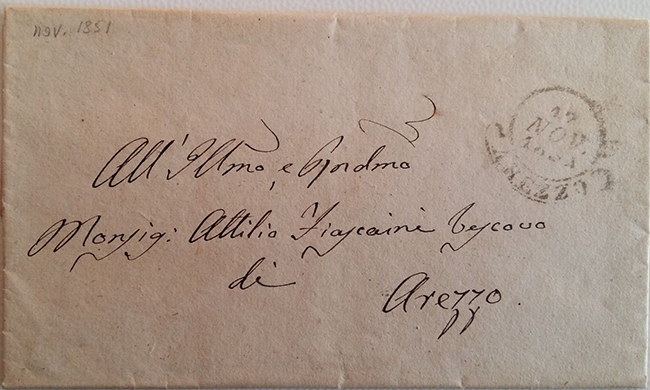 nov. 1851
17
NOV.
1851
AREZZO
All'Illmo e Rmdmo
Monsig: Attilio Fiascaini Vescovo
di
Arezzo